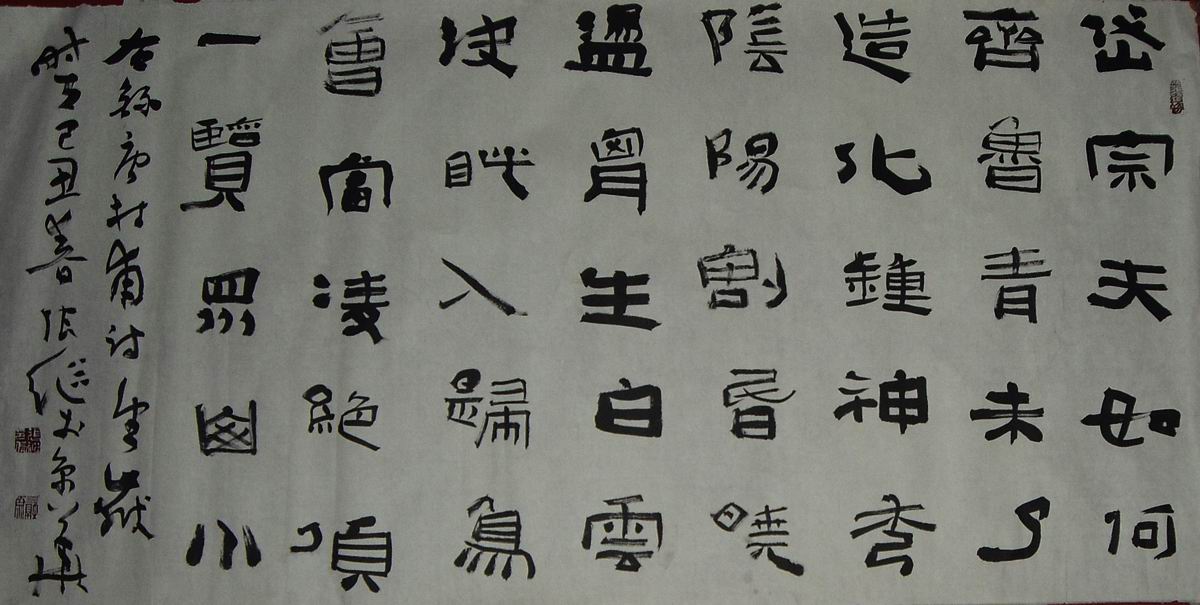 岱宗夫如何
齊魯青未了
造化鍾神秀
陰陽割昏曉
盪胷生白雲
決眥入歸鳥
會當凌絕頂
一覽眾山小
右錄唐杜甫詩望嶽
时在己丑春张继于京華